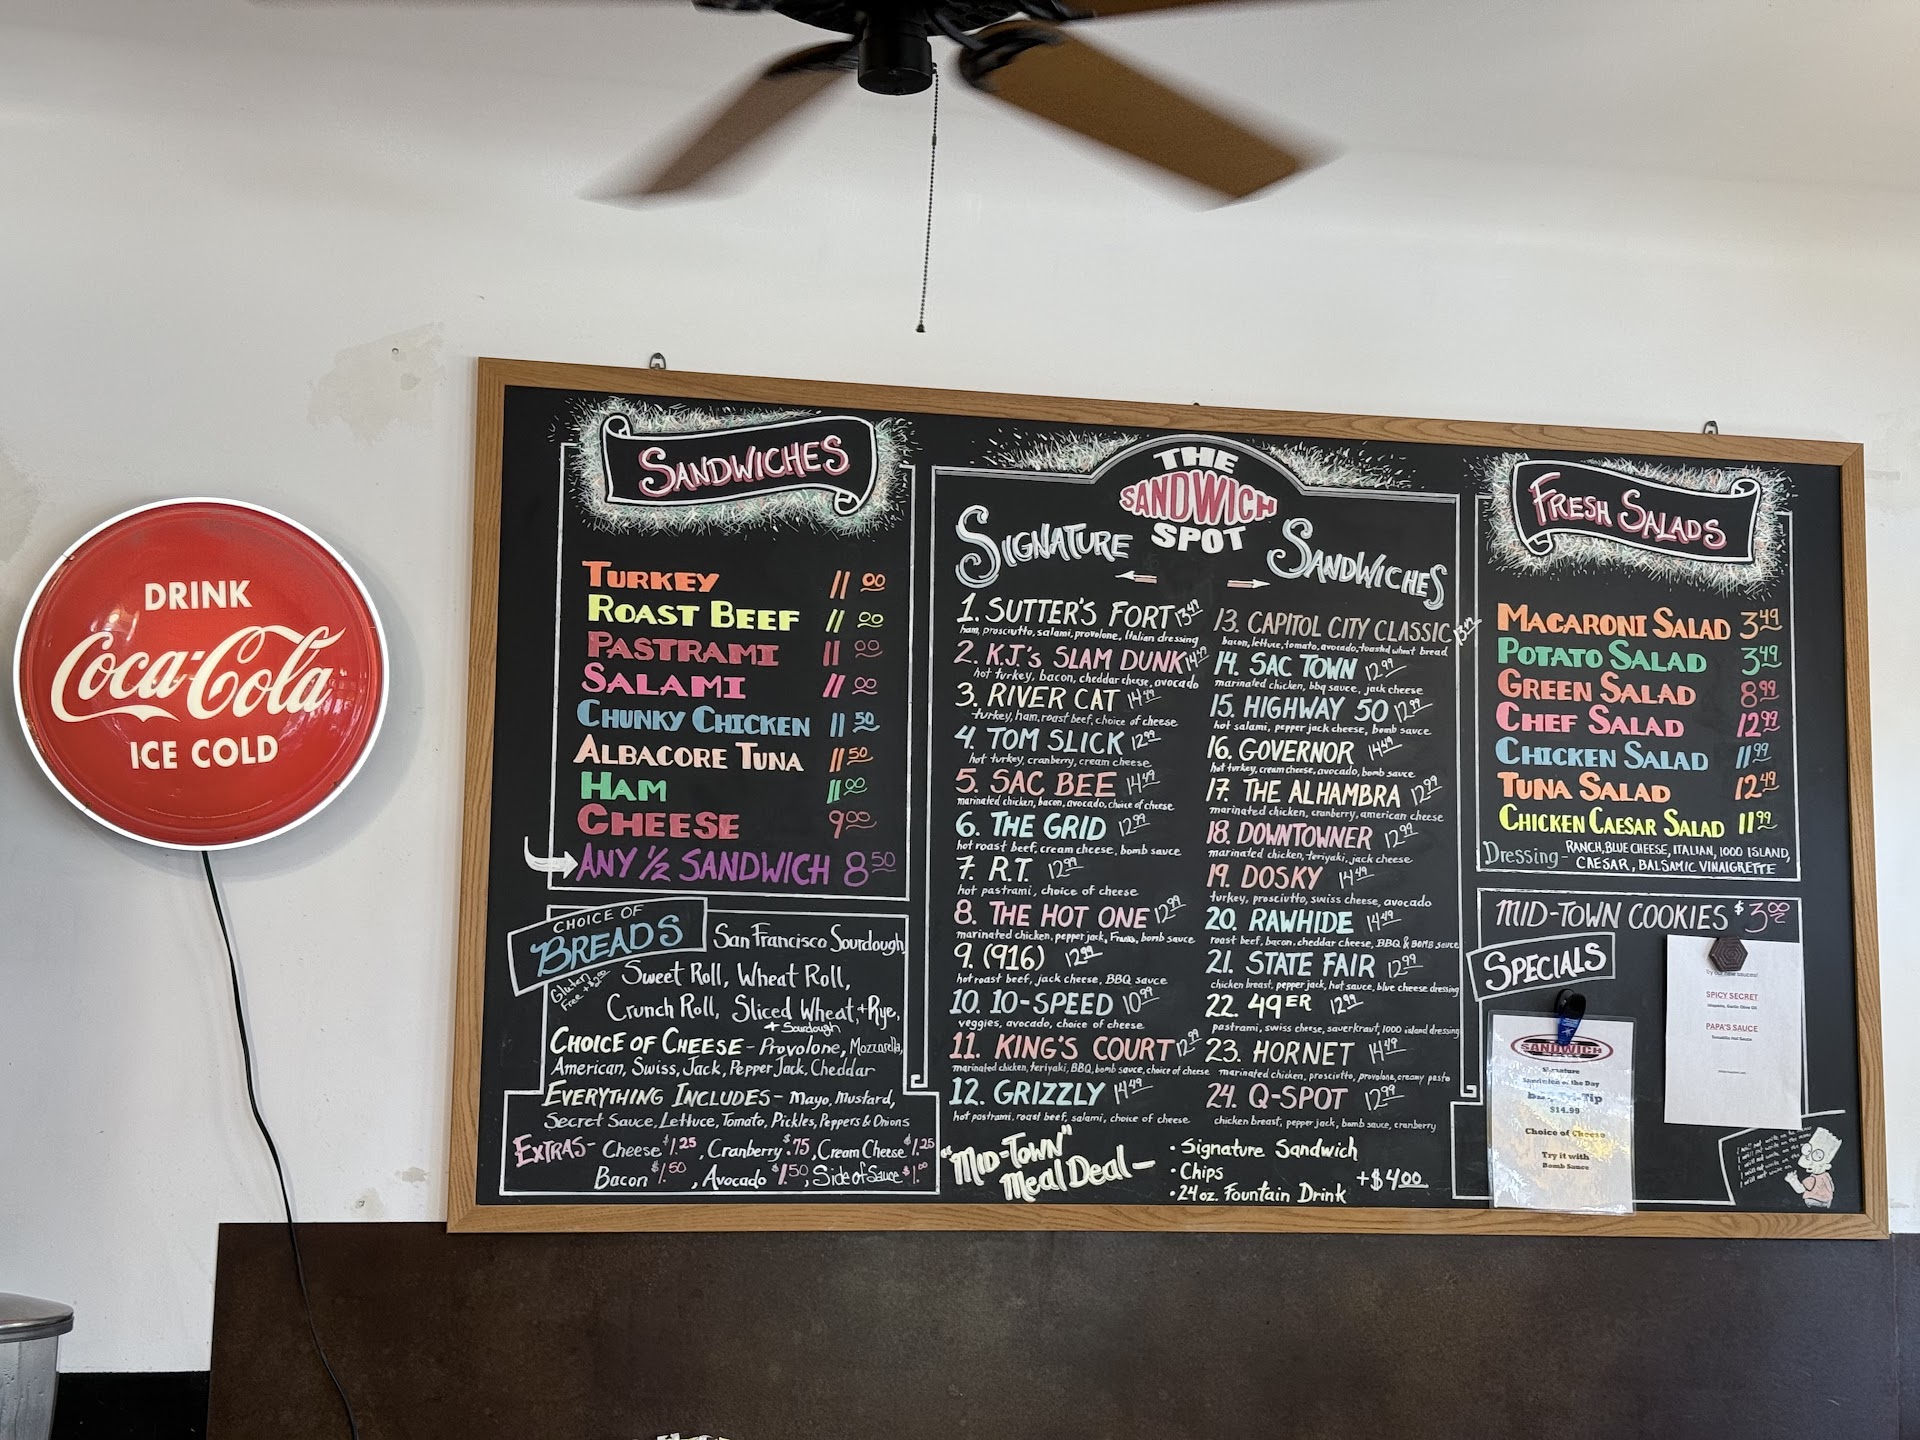 DRINK
Coca-Cola
ICE COLD
SANDWICHES
TURKEY 11 00
ROAST BEEF 11 00
PASTRAMI 11 00
SALAMI 11 00
CHUNKY CHICKEN 11 50
ALBACORE TUNA 11 50
HAM 11 00
CHEESE 9 00
ANY 1/2 SANDWICH 8 50
CHOICE OF
BREADS
San Francisco Sourdough,
Gluten
Free +$2.00
Sweet Roll, Wheat Roll,
Crunch Roll, Sliced Wheat, + Rye,
+ Sourdough
CHOICE OF CHEESE - Provolone, Mozzarella,
American, Swiss, Jack, Pepper Jack, Cheddar
EVERYTHING INCLUDES - Mayo, Mustard,
Secret Sauce, Lettuce, Tomato, Pickles, Peppers & Onions
EXTRAS - Cheese $1.25, Cranberry $.75, Cream Cheese $1.25
Bacon $1.50, Avocado $1.50, Side of Sauce $1.00
THE
SANDWICH
SPOT
SIGNATURE SANDWICHES
1. SUTTER'S FORT 13.49
ham, prosciutto, salami, provolone, Italian dressing
2. K.J.'s SLAM DUNK 14.49
hot turkey, bacon, cheddar cheese, avocado
3. RIVER CAT 14.49
turkey, ham, roast beef, choice of cheese
4. TOM SLICK 12.99
hot turkey, cranberry, cream cheese
5. SAC BEE 14.49
marinated chicken, bacon, avocado, choice of cheese
6. THE GRID 12.99
hot roast beef, cream cheese, bomb sauce
7. R.T. 12.99
hot pastrami, choice of cheese
8. THE HOT ONE 12.99
marinated chicken, pepper jack, Franks, bomb sauce
9. (916) 12.99
hot roast beef, jack cheese, BBQ sauce
10. 10-SPEED 10.99
veggies, avocado, choice of cheese
11. KING'S COURT 12.99
marinated chicken, teriyaki, BBQ, bomb sauce, choice of cheese
12. GRIZZLY 14.49
hot pastrami, roast beef, salami, choice of cheese
13. CAPITOL CITY CLASSIC 13.49
bacon, lettuce, tomato, avocado, toasted wheat bread
14. SAC TOWN 12.99
marinated chicken, bbq sauce, jack cheese
15. HIGHWAY 50 12.99
hot salami, pepper jack cheese, bomb sauce
16. GOVERNOR 14.49
hot turkey, cream cheese, avocado, bomb sauce
17. THE ALHAMBRA 12.99
marinated chicken, cranberry, american cheese
18. DOWNTOWNER 12.99
marinated chicken, teriyaki, jack cheese
19. DOSKY 14.49
turkey, prosciutto, swiss cheese, avocado
20. RAWHIDE 14.49
roast beef, bacon, cheddar cheese, BBQ & BOMB sauce
21. STATE FAIR 12.99
chicken breast, pepper jack, hot sauce, blue cheese dressing
22. 49ER 12.99
pastrami, swiss cheese, sauerkraut, 1000 island dressing
23. HORNET 14.49
marinated chicken, prosciutto, provolone, creamy pesto
24. Q-SPOT 12.99
chicken breast, pepper jack, bomb sauce, cranberry
"MID-TOWN"
MEAL DEAL -
• Signature Sandwich
• Chips
• 24 oz. Fountain Drink
+$4.00
FRESH SALADS
MACARONI SALAD 3.49
POTATO SALAD 3.49
GREEN SALAD 8.99
CHEF SALAD 12.99
CHICKEN SALAD 11.99
TUNA SALAD 12.49
CHICKEN CAESAR SALAD 11.99
Dressing - RANCH, BLUE CHEESE, ITALIAN, 1000 ISLAND,
CAESAR, BALSAMIC VINAIGRETTE
MID-TOWN COOKIES $3.00
SPECIALS
SANDWICH
Signature
Sandwich of the Day
Tri-Tip
$14.99
Choice of Cheese
Try it with
Bomb Sauce
new sauces!
SPICY SECRET
PAPA'S SAUCE